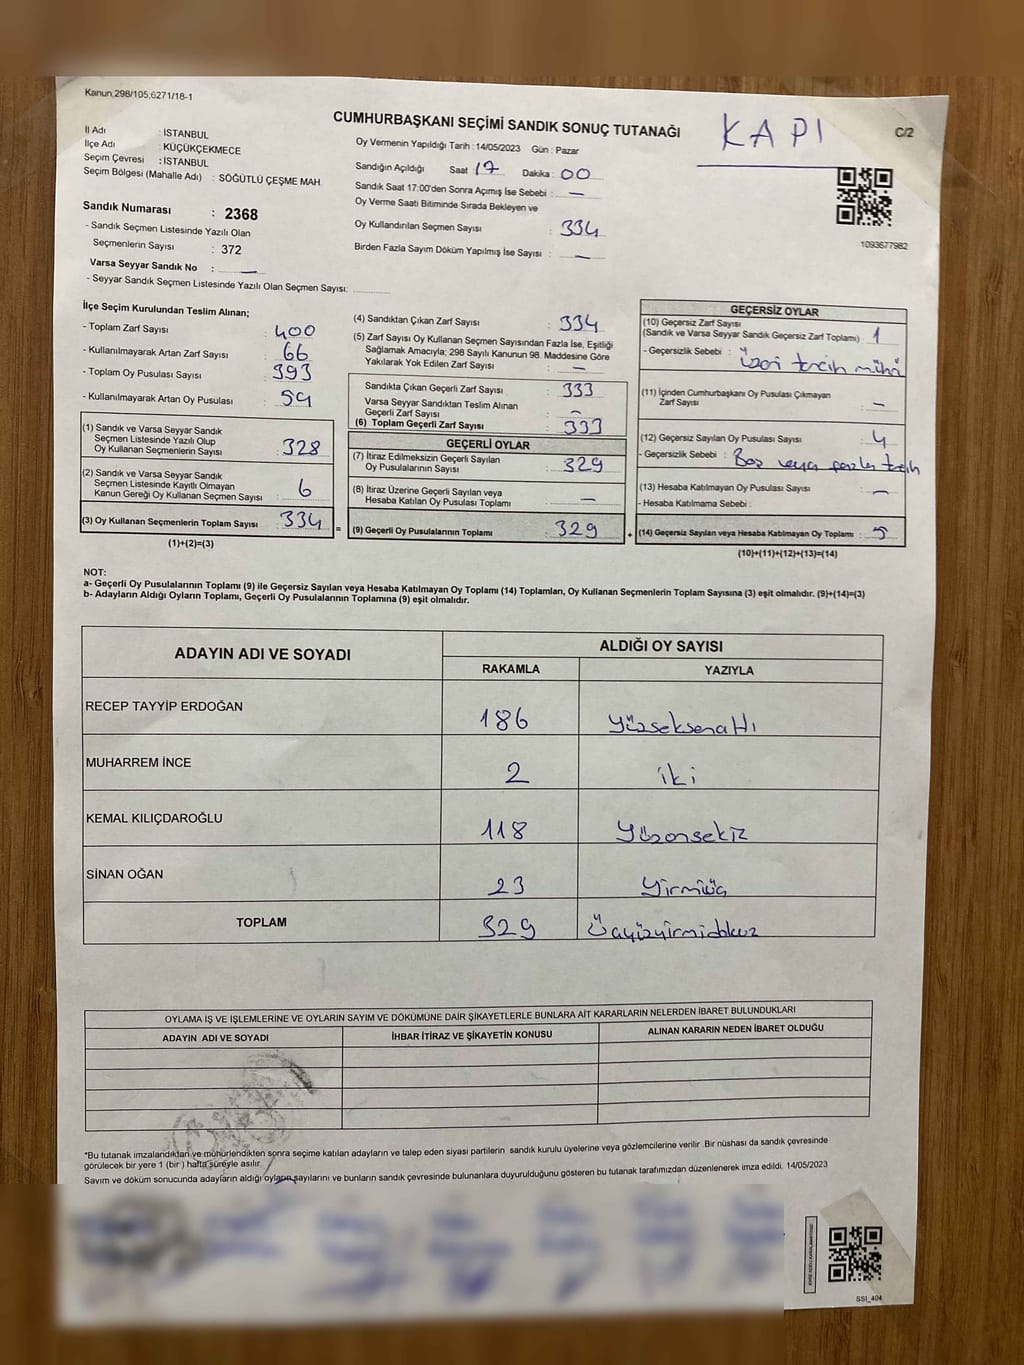 Kanun,298/105,6271/18-1
CUMHURBAŞKANI SEÇİMİ SANDIK SONUÇ TUTANAĞI
KAPI
C/2
İl Adı : İSTANBUL
İlçe Adı : KÜÇÜKÇEKMECE
Seçim Çevresi : İSTANBUL
Seçim Bölgesi (Mahalle Adı) : SÖĞÜTLÜ ÇEŞME MAH.
Sandık Numarası : 2368
- Sandık Seçmen Listesinde Yazılı Olan
Seçmenlerin Sayısı : 372
Varsa Seyyar Sandık No : —
- Seyyar Sandık Seçmen Listesinde Yazılı Olan Seçmen Sayısı:
Oy Vermenin Yapıldığı Tarih : 14/05/2023 Gün : Pazar
Sandığın Açıldığı Saat : 17 Dakika : 00
Sandık Saat 17:00'den Sonra Açımış İse Sebebi : —
Oy Verme Saati Bitiminde Sırada Bekleyen ve
Oy Kullandırılan Seçmen Sayısı : 334
Birden Fazla Sayım Döküm Yapılmış İse Sayısı : —
1093677982
İlçe Seçim Kurulundan Teslim Alınan;
- Toplam Zarf Sayısı : 400
- Kullanılmayarak Artan Zarf Sayısı : 66
- Toplam Oy Pusulası Sayısı : 393
- Kullanılmayarak Artan Oy Pusulası : 59
(1) Sandık ve Varsa Seyyar Sandık
Seçmen Listesinde Yazılı Olup
Oy Kullanan Seçmenlerin Sayısı : 328
(2) Sandık ve Varsa Seyyar Sandık
Seçmen Listesinde Kayıtlı Olmayan
Kanun Gereği Oy Kullanan Seçmen Sayısı : 6
(3) Oy Kullanan Seçmenlerin Toplam Sayısı : 334 =
(1)+(2)=(3)
(4) Sandıktan Çıkan Zarf Sayısı : 334
(5) Zarf Sayısı Oy Kullanan Seçmen Sayısından Fazla İse, Eşitliği
Sağlamak Amacıyla; 298 Sayılı Kanunun 98. Maddesine Göre
Yakılarak Yok Edilen Zarf Sayısı : —
Sandıkta Çıkan Geçerli Zarf Sayısı : 333
Varsa Seyyar Sandıktan Teslim Alınan
Geçerli Zarf Sayısı : —
(6) Toplam Geçerli Zarf Sayısı : 333
GEÇERLİ OYLAR
(7) İtiraz Edilmeksizin Geçerli Sayılan
Oy Pusulalarının Sayısı : 329
(8) İtiraz Üzerine Geçerli Sayılan veya
Hesaba Katılan Oy Pusulası Toplamı : —
(9) Geçerli Oy Pusulalarının Toplamı : 329 +
GEÇERSİZ OYLAR
(10) Geçersiz Zarf Sayısı
(Sandık ve Varsa Seyyar Sandık Geçersiz Zarf Toplamı) : 1
- Geçersizlik Sebebi : Üzeri tercih mühü
(11) İçinden Cumhurbaşkanı Oy Pusulası Çıkmayan
Zarf Sayısı : —
(12) Geçersiz Sayılan Oy Pusulası Sayısı : 4
- Geçersizlik Sebebi : Boş veya fazla tercih
(13) Hesaba Katılmayan Oy Pusulası Sayısı : —
- Hesaba Katılmama Sebebi :
(14) Geçersiz Sayılan veya Hesaba Katılmayan Oy Toplamı : 5
(10)+(11)+(12)+(13)=(14)
NOT:
a- Geçerli Oy Pusulalarının Toplamı (9) ile Geçersiz Sayılan veya Hesaba Katılmayan Oy Toplamı (14) Toplamları, Oy Kullanan Seçmenlerin Toplam Sayısına (3) eşit olmalıdır. (9)+(14)=(3)
b- Adayların Aldığı Oyların Toplamı, Geçerli Oy Pusulalarının Toplamına (9) eşit olmalıdır.
ADAYIN ADI VE SOYADI
ALDIĞI OY SAYISI
RAKAMLA YAZIYLA
RECEP TAYYİP ERDOĞAN 186 Yüzseksenaltı
MUHARREM İNCE 2 iki
KEMAL KILIÇDAROĞLU 118 Yüzonsekiz
SİNAN OĞAN 23 Yirmiüç
TOPLAM 329 Üçyüzyirmidokuz
OYLAMA İŞ VE İŞLEMLERİNE VE OYLARIN SAYIM VE DÖKÜMÜNE DAİR ŞİKAYETLERLE BUNLARA AİT KARARLARIN NELERDEN İBARET BULUNDUKLARI
ADAYIN ADI VE SOYADI İHBAR İTİRAZ VE ŞİKAYETİN KONUSU ALINAN KARARIN NEDEN İBARET OLDUĞU
*Bu tutanak imzalandıktan ve mühürlendikten sonra seçime katılan adayların ve talep eden siyasi partilerin sandık kurulu üyelerine veya gözlemcilerine verilir .Bir nüshası da sandık çevresinde
görülecek bir yere 1 (bir ) hafta süreyle asılır.
Sayım ve döküm sonucunda adayların aldığı oyların sayılarını ve bunların sandık çevresinde bulunanlara duyurulduğunu gösteren bu tutanak tarafımızdan düzenlenerek imza edildi. 14/05/2023
SSI_404